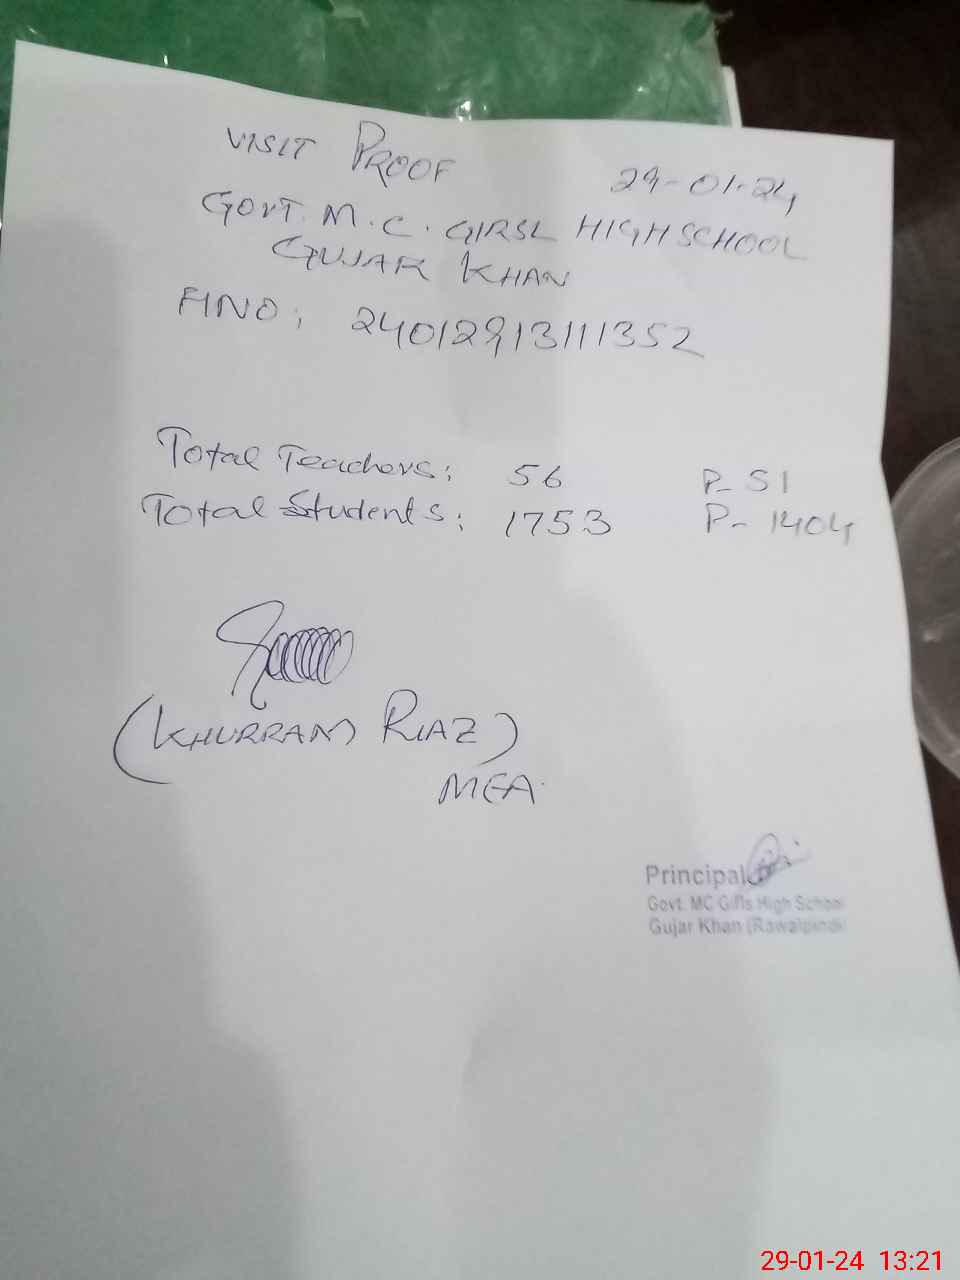 VISIT PROOF 29-01-24
GOVT. M.C. GIRSL HIGH SCHOOL
GUJAR KHAN
FINO: 24012913111352
Total Teachers: 56 P- 51
Total Students: 1753 P- 1404
(KHURRAM RIAZ)
MEA
Principal
Govt. MC Girls High School
Gujar Khan (Rawalpindi)
29-01-24 13:21